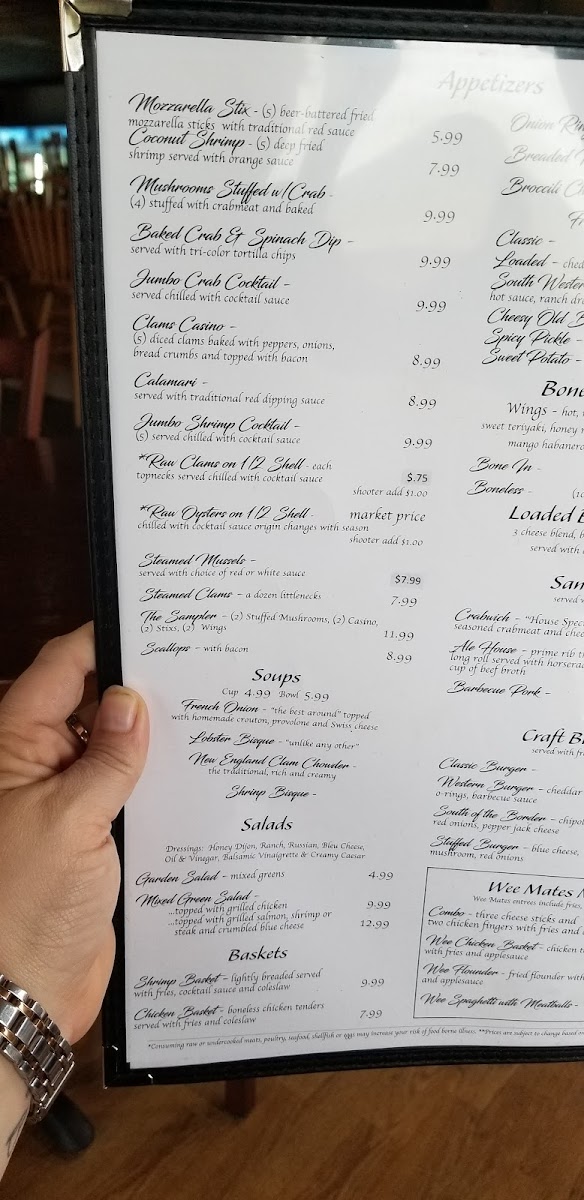 Appetizers
Mozzarella Stix - (5) beer-battered fried
mozzarella sticks with traditional red sauce
5.99
Coconut Shrimp - (5) deep fried
shrimp served with orange sauce
7.99
Mushrooms Stuffed w/Crab -
(4) stuffed with crabmeat and baked
9.99
Baked Crab & Spinach Dip -
served with tri-color tortilla chips
9.99
Jumbo Crab Cocktail -
served chilled with cocktail sauce
9.99
Clams Casino -
(5) diced clams baked with peppers, onions,
bread crumbs and topped with bacon
8.99
Calamari -
served with traditional red dipping sauce
8.99
Jumbo Shrimp Cocktail -
(5) served chilled with cocktail sauce
9.99
*Raw Clams on 1/2 Shell - each
topnecks served chilled with cocktail sauce
$.75
shooter add $1.00
*Raw Oysters on 1/2 Shell - market price
chilled with cocktail sauce origin changes with season
shooter add $1.00
Steamed Mussels -
served with choice of red or white sauce
$7.99
Steamed Clams - a dozen littlenecks
7.99
The Sampler - (2) Stuffed Mushrooms, (2) Casino,
(2) Stixs, (2) Wings
11.99
Scallops - with bacon
8.99
Soups
Cup 4.99 Bowl 5.99
French Onion - "the best around" topped
with homemade crouton, provolone and Swiss cheese
Lobster Bisque - "unlike any other"
New England Clam Chowder -
the traditional, rich and creamy
Shrimp Bisque -
Salads
Dressings: Honey Dijon, Ranch, Russian, Bleu Cheese,
Oil & Vinegar, Balsamic Vinaigrette & Creamy Caesar
Garden Salad - mixed greens 4.99
Mixed Green Salad -
...topped with grilled chicken 9.99
...topped with grilled salmon, shrimp or
steak and crumbled blue cheese 12.99
Baskets
Shrimp Basket - lightly breaded served
with fries, cocktail sauce and coleslaw 9.99
Chicken Basket - boneless chicken tenders
served with fries and coleslaw 7.99
Onion
Breaded
Brocclli
Classic -
Loaded - ched
South Wester
hot sauce, ranch
Cheesy Old B
Spicy Pickle -
Sweet Potato -
Bone
Wings - hot,
sweet teriyaki, honey
mango habanero
Bone In -
Boneless -
Loaded
3 cheese blend,
served with
San
served
Crabwich - "House Spec
seasoned crabmeat and chee
Ale House - prime rib
long roll served with horsera
cup of beef broth
Barbecue Pork -
Craft B
served with
Classic Burger -
Western Burger - cheddar
o-rings, barbecue sauce
South of the Border - chipo
red onions, pepper jack cheese
Stuffed Burger - blue cheese,
mushroom, red onions
Wee Mates
Wee Mates entrees include fries,
Combo - three cheese sticks and
two chicken fingers with fries and
Wee Chicken Basket - chicken
with fries and applesauce
Wee Flounder - fried flounder with
and applesauce
Wee Spaghetti with Meatballs -
*Consuming raw or undercooked meats, poultry, seafood, shellfish or eggs may increase your risk of food borne illness. **Prices are subject to change based